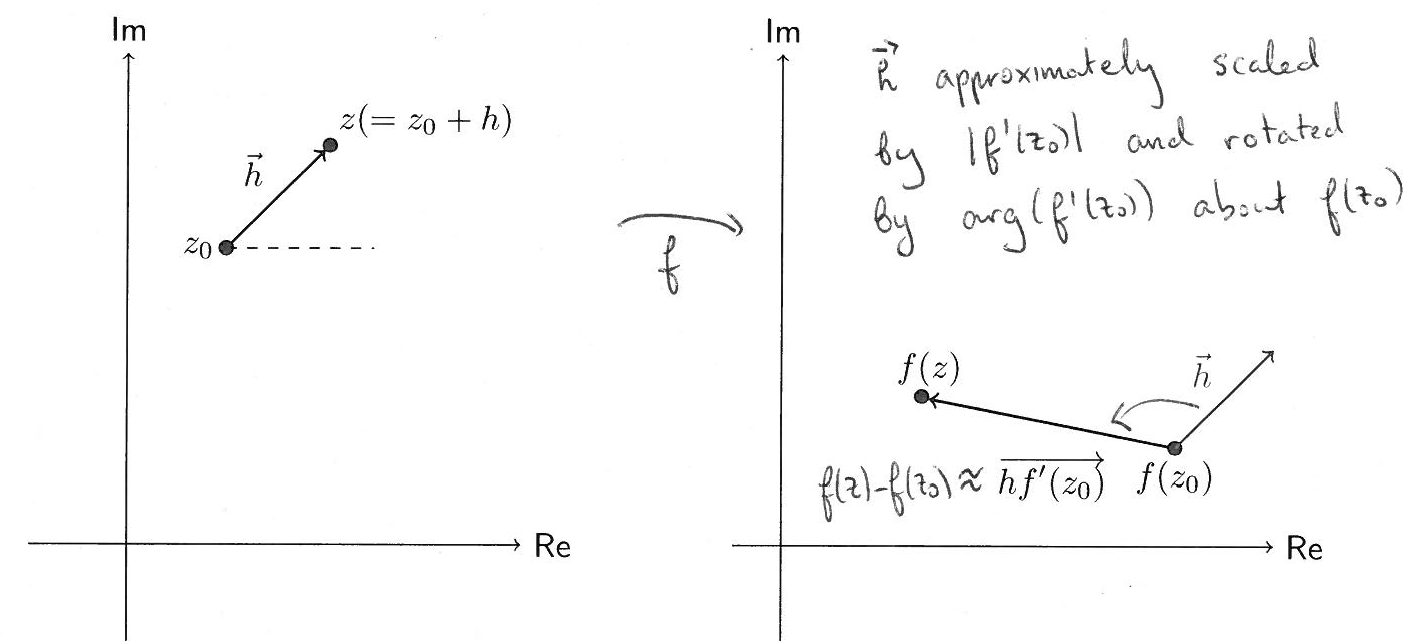 Im
z(= z₀ + h)
h⃗
z₀
Re
f
Im
h⃗ approximately scaled
by |f'(z₀)| and rotated
by arg(f'(z₀)) about f(z₀)
f(z)
h⃗
f(z)-f(z₀) ≈ \overrightarrow{hf′(z₀)} f(z₀)
Re